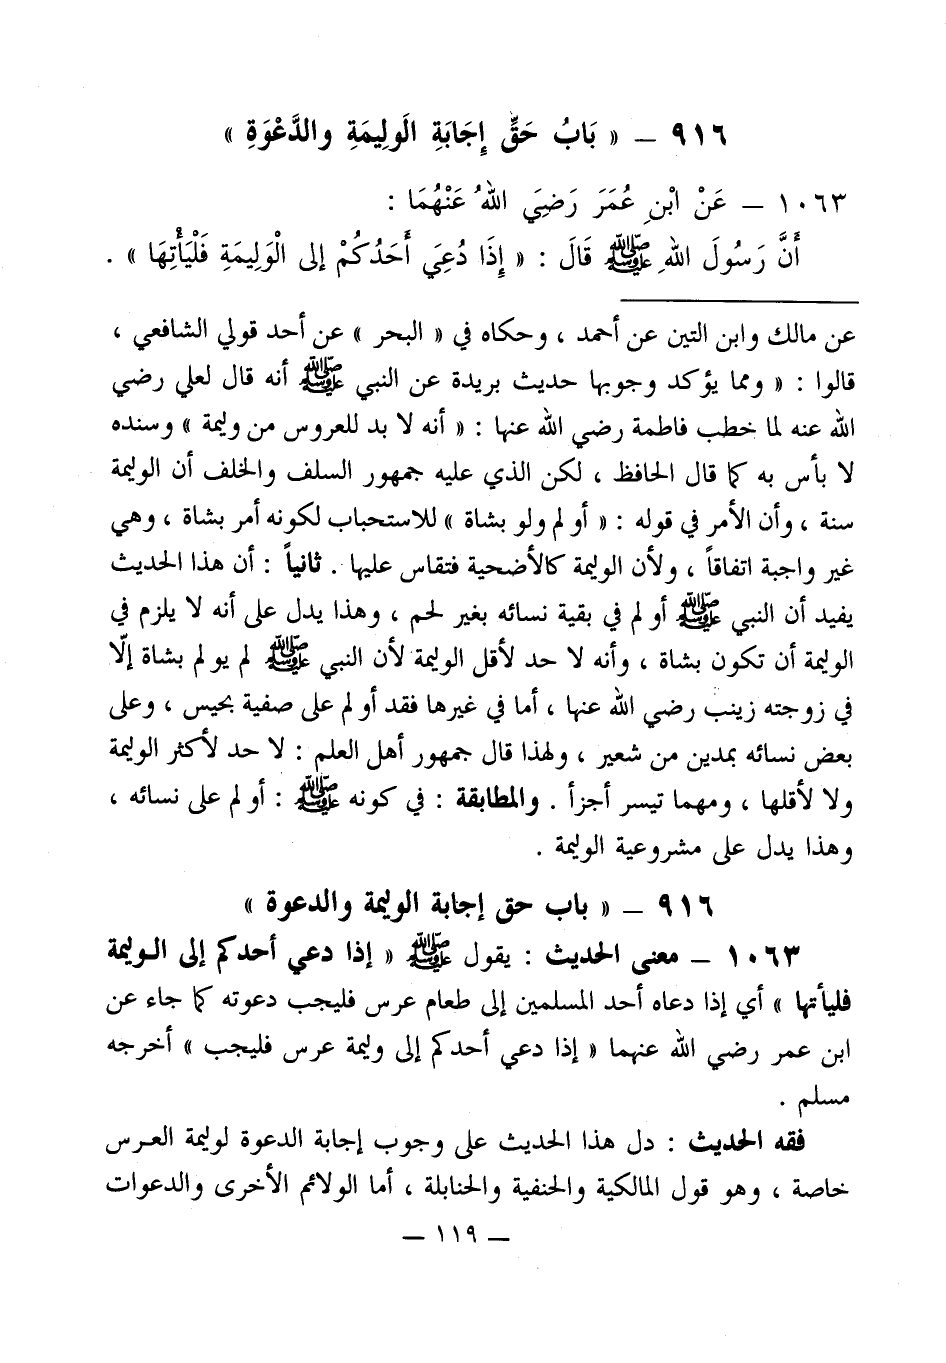 ٩١٦ – « بَابُ حَقِّ إِجَابَةِ الَولِيمَةِ والدَّعْوَةِ »
١٠٦٣ – عَنْ ابْنِ عُمَرَ رَضِيَ اللهُ عَنْهُمَا :
أَنَّ رَسُولَ اللهِ ﷺ قَالَ : « إِذَا دُعِيَ أَحَدُكُمْ إلى الْوَلِيمَةِ فَلْيَأْتِهَا » .
عن مالك وابن التين عن أحمد ، وحكاه في « البحر » عن أحد قولي الشافعي ،
قالوا : « ومما يؤكد وجوبها حديث بريدة عن النبي ﷺ أنه قال لعلي رضي
الله عنه لما خطب فاطمة رضي الله عنها : « أنه لا بد للعروس من وليمة » وسنده
لا بأس به كما قال الحافظ ، لكن الذي عليه جمهور السلف والخلف أن الوليمة
سنة ، وأن الأمر في قوله : « أو لم ولو بشاة » للاستحباب لكونه أمر بشاة ، وهي
غير واجبة اتفاقاً ، ولأن الوليمة كالأضحية فتقاس عليها . ثانياً : أن هذا الحديث
يفيد أن النبي ﷺ أو لم في بقية نسائه بغير لحم ، وهذا يدل على أنه لا يلزم في
الوليمة أن تكون بشاة ، وأنه لا حد لأقل الوليمة لأن النبي ﷺ لم يو لم بشاة إلّا
في زوجته زينب رضي الله عنها ، أما في غيرها فقد أو لم على صفية بحيس ، وعلى
بعض نسائه بمدين من شعير ، ولهذا قال جمهور أهل العلم : لا حد لأكثر الوليمة
ولا لأقلها ، ومهما تيسر أجزأ . والمطابقة : في كونه ﷺ : أو لم على نسائه ،
وهذا يدل على مشروعية الوليمة .
٩١٦ – « باب حق إجابة الوليمة والدعوة »
١٠٦٣ – معنى الحديث : يقول ﷺ « إذا دعي أحدكم إلى الوليمة
فليأتها » أي إذا دعاه أحد المسلمين إلى طعام عرس فليجب دعوته كما جاء عن
ابن عمر رضي الله عنهما « إذا دعي أحدكم إلى وليمة عرس فليجب » أخرجه
مسلم .
فقه الحديث : دل هذا الحديث على وجوب إجابة الدعوة لوليمة العرس
خاصة ، وهو قول المالكية والحنفية والحنابلة ، أما الولائم الأخرى والدعوات
– ١١٩ –